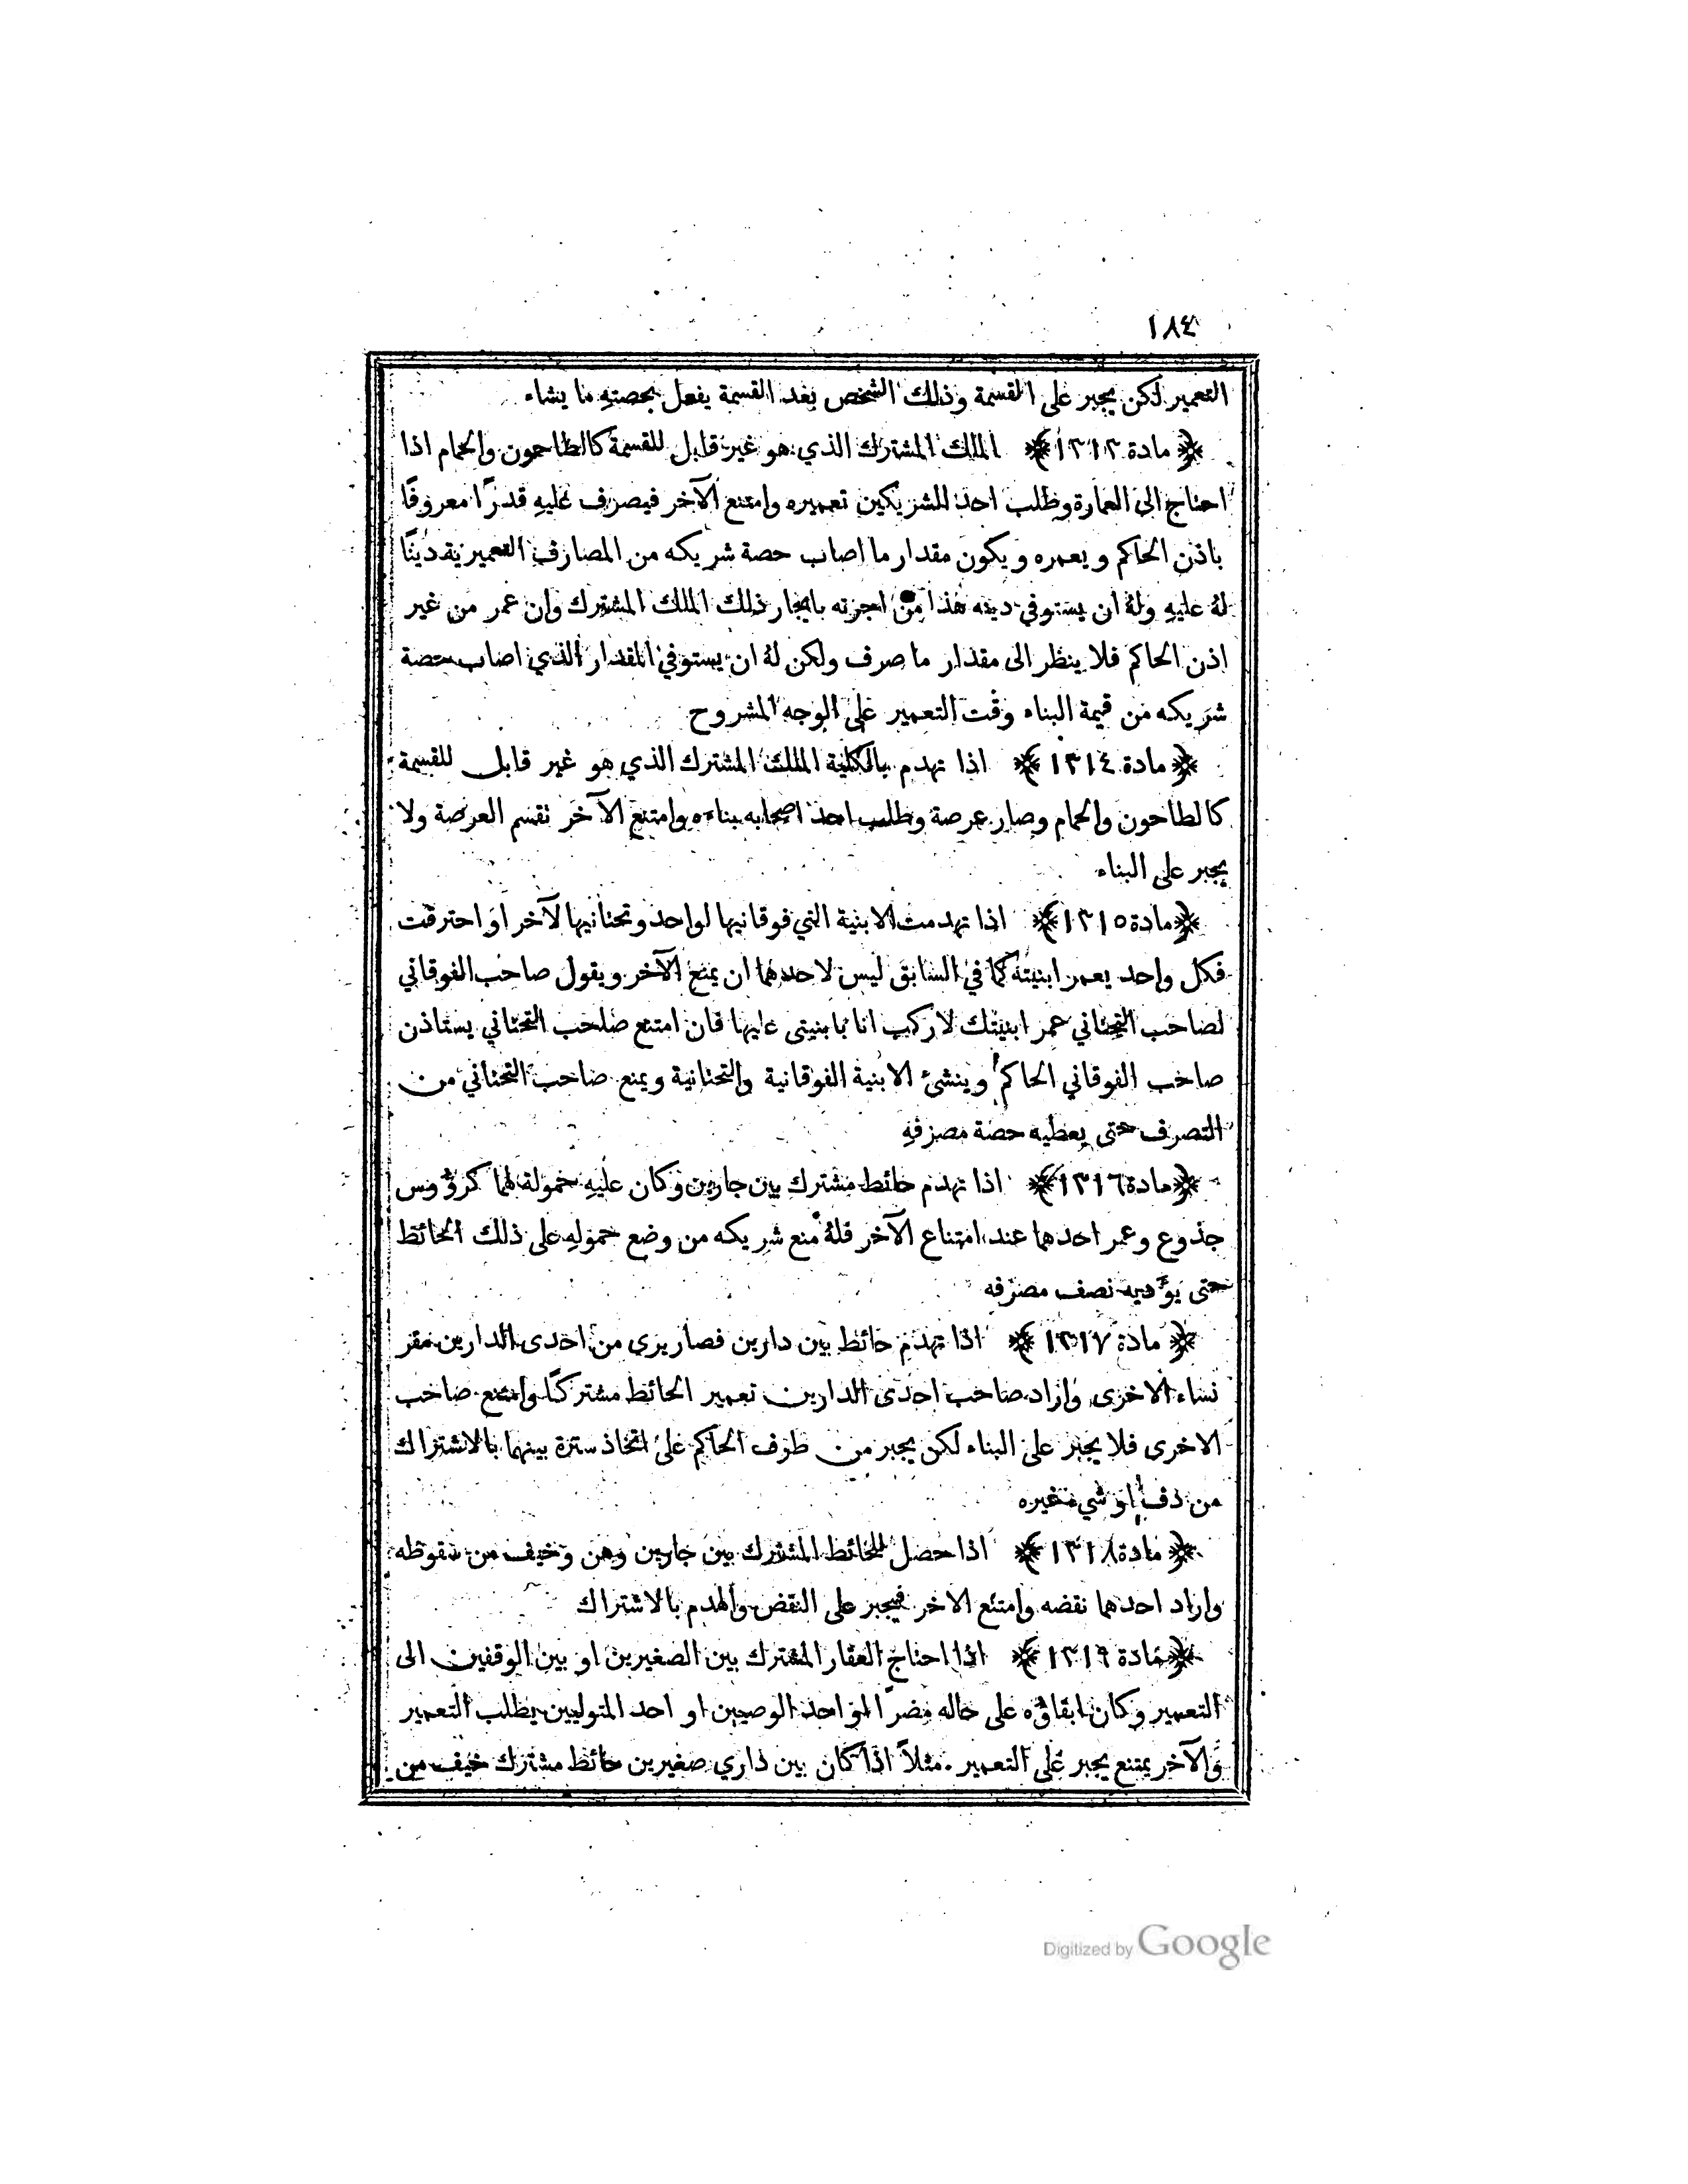 ١٨٤
التعمير لكن يجبر على القسمة وذلك الشخص بعد القسمة يفعل بحصتهِ ما يشاء
﴿ مادة ١٣١٣ ﴾ الملك المشترك الذي هو غير قابل للقسمة كالطاحون والحمام اذا
احتاج الى العمارة وطلب احد الشريكين تعميره وامتنع الآخر فيصرف عليهِ قدرًا معروفًا
باذن الحاكم ويعمره ويكون مقدار ما اصاب حصة شريكه من المصارف التعميرية دينًا
لهُ عليهِ ولهُ ان يستوفي دينه هذا من اجرته بايجار ذلك الملك المشترك وان عمر من غير
اذن الحاكم فلا ينظر الى مقدار ما صرف ولكن لهُ ان يستوفي المقدار الذي اصاب حصة
شريكه من قيمة البناء وقت التعمير على الوجه المشروح
﴿ مادة ١٣١٤ ﴾ اذا تهدم بالكلية الملك المشترك الذي هو غير قابل للقسمة
كالطاحون والحمام وصار عرصة وطلب احد اصحابه بناءه وامتنع الآخر تقسم العرصة ولا
يجبر على البناء
﴿ مادة ١٣١٥ ﴾ اذا تهدمت الابنية التي فوقانيها لواحد وتحتانيها لآخر او احترقت
فكل واحد يعمر ابنيتهُ كما في السابق ليس لاحدهما ان يمنع الآخر ويقول صاحب الفوقاني
لصاحب التحتاني عمر ابنيتك لاركب انا بابنيتي عليها فان امتنع صاحب التحتاني يستاذن
صاحب الفوقاني الحاكم وينشئ الابنية الفوقانية والتحتانية ويمنع صاحب التحتاني من
التصرف حتى يعطيه حصة مصرفهِ
﴿ مادة ١٣١٦ ﴾ اذا تهدم حائط مشترك بين جارين وكان عليهِ حمولة لهما كرؤوس
جذوع وعمر احدهما عند امتناع الآخر فلهُ منع شريكه من وضع حمولهِ على ذلك الحائط
حتى يؤديه نصف مصرفه
﴿ مادة ١٣١٧ ﴾ اذا تهدم حائط بين دارين فصار يرى من احدى الدارين مقر
نساء الاخرى واراد صاحب احدى الدارين تعمير الحائط مشتركًا وامتنع صاحب
الاخرى فلا يجبر على البناء لكن يجبر من طرف الحاكم على اتخاذ سترة بينهما بالاشتراك
من دف او شيء غيره
﴿ مادة ١٣١٨ ﴾ اذا حصل للحائط المشترك بين جارين وهن وخيف من سقوطه
واراد احدهما نقضه وامتنع الاخر فيجبر على النقض والهدم بالاشتراك
﴿ مادة ١٣١٩ ﴾ اذا احتاج العقار المشترك بين الصغيرين او بين الوقفين الى
التعمير وكان ابقاؤه على حاله مضرًا لو احد الوصيين او احد المتوليين يطلب التعمير
والآخر يمتنع يجبر على التعمير . مثلاً اذا كان بين داري صغيرين حائط مشترك خيف من
Digitized by Google